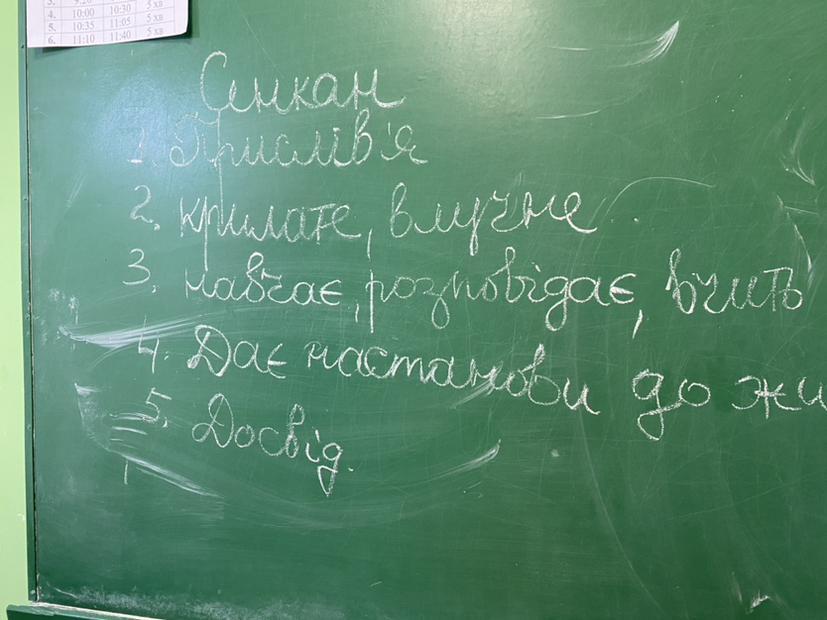 4. 10:00 10:30 5 хв
5. 10:35 11:05 5 хв
6. 11:10 11:40 5 хв
Сенкан
1. Прислів'я
2. крилате, влучне
3. навчає, розповідає, вчить
4. Дає настанови до жи
5. Досвід.